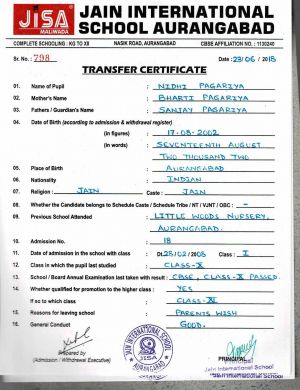 JISA
MALIWADA
JAIN INTERNATIONAL
SCHOOL AURANGABAD
COMPLETE SCHOOLING : KG TO XII NASIK ROAD, AURANGABAD CBSE AFFILIATION NO. : 1130240
Sr. No. : 798 Date : 23/06 / 2018
TRANSFER CERTIFICATE
01. Name of Pupil : NIDHI PAGARIYA
02. Mother's Name : BHARTI PAGARIYA
03. Fathers / Guardian's Name : SANJAY PAGARIYA
04. Date of Birth (according to admission & withdrawal register)
(in figures) : 17-08-2002
(in words) : SEVENTEENTH AUGUST
TWO THOUSAND TWO
05. Place of Birth : AURANGABAD
06. Nationality : INDIAN
07. Religion : JAIN Caste : JAIN
08. Whether the Candidate belongs to Schedule Caste / Schedule Tribe / NT / VJNT / OBC : -
09. Previous School Attended : LITTLE WOODS NURSERY,
AURANGABAD.
10. Admission No. : 18
11. Date of admission in the school with class : Dt. 25/02/2008 Class : I
12. Class in which the pupil last studied : CLASS-X
13. School / Board Annual Examination last taken with result : CBSE, CLASS-X PASSED
14. Whether qualified for promotion to the higher class : YES
If so to which class : CLASS-XI
15. Reasons for leaving school : PARENTS WISH
16. General Conduct : GOOD.
Prepared by
(Admission / Withdrawal Executive)
JAIN INTERNATIONAL SCHOOL
JISA
AURANGABAD
PRINCIPAL
Principal
Jain International School
Aurangabad
Jain International School